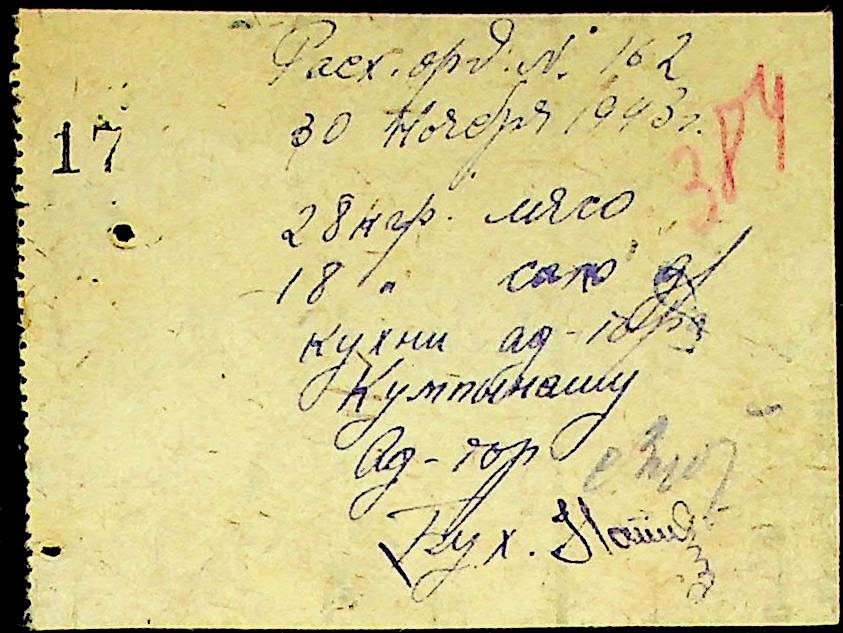 Расх. орд. N. 162
17
30 Ноября 1943 г.
384
28 кгр. мясо
18 " сало д/
кухни ад-тора
Кумпынашу
Ад-тор
Бух.